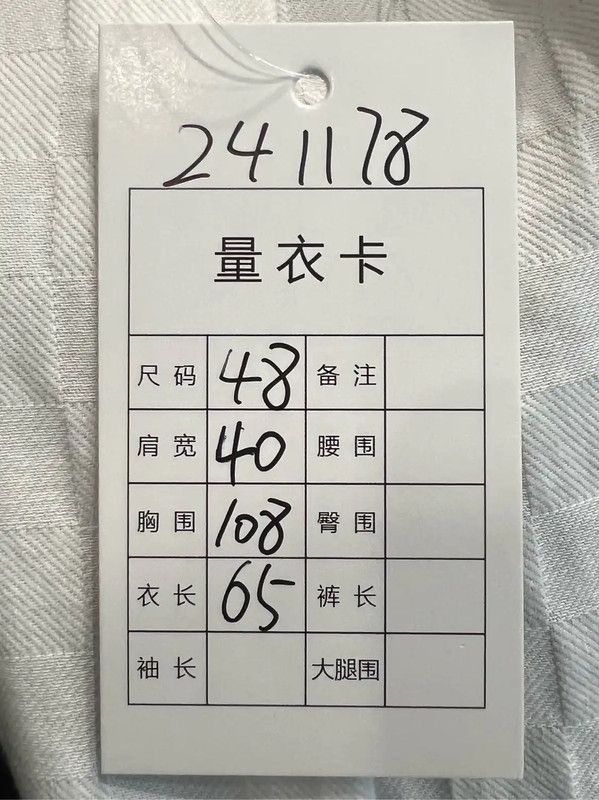 241178
量衣卡
尺码 48 备注
肩宽 40 腰围
胸围 108 臀围
衣长 65 裤长
袖长 大腿围